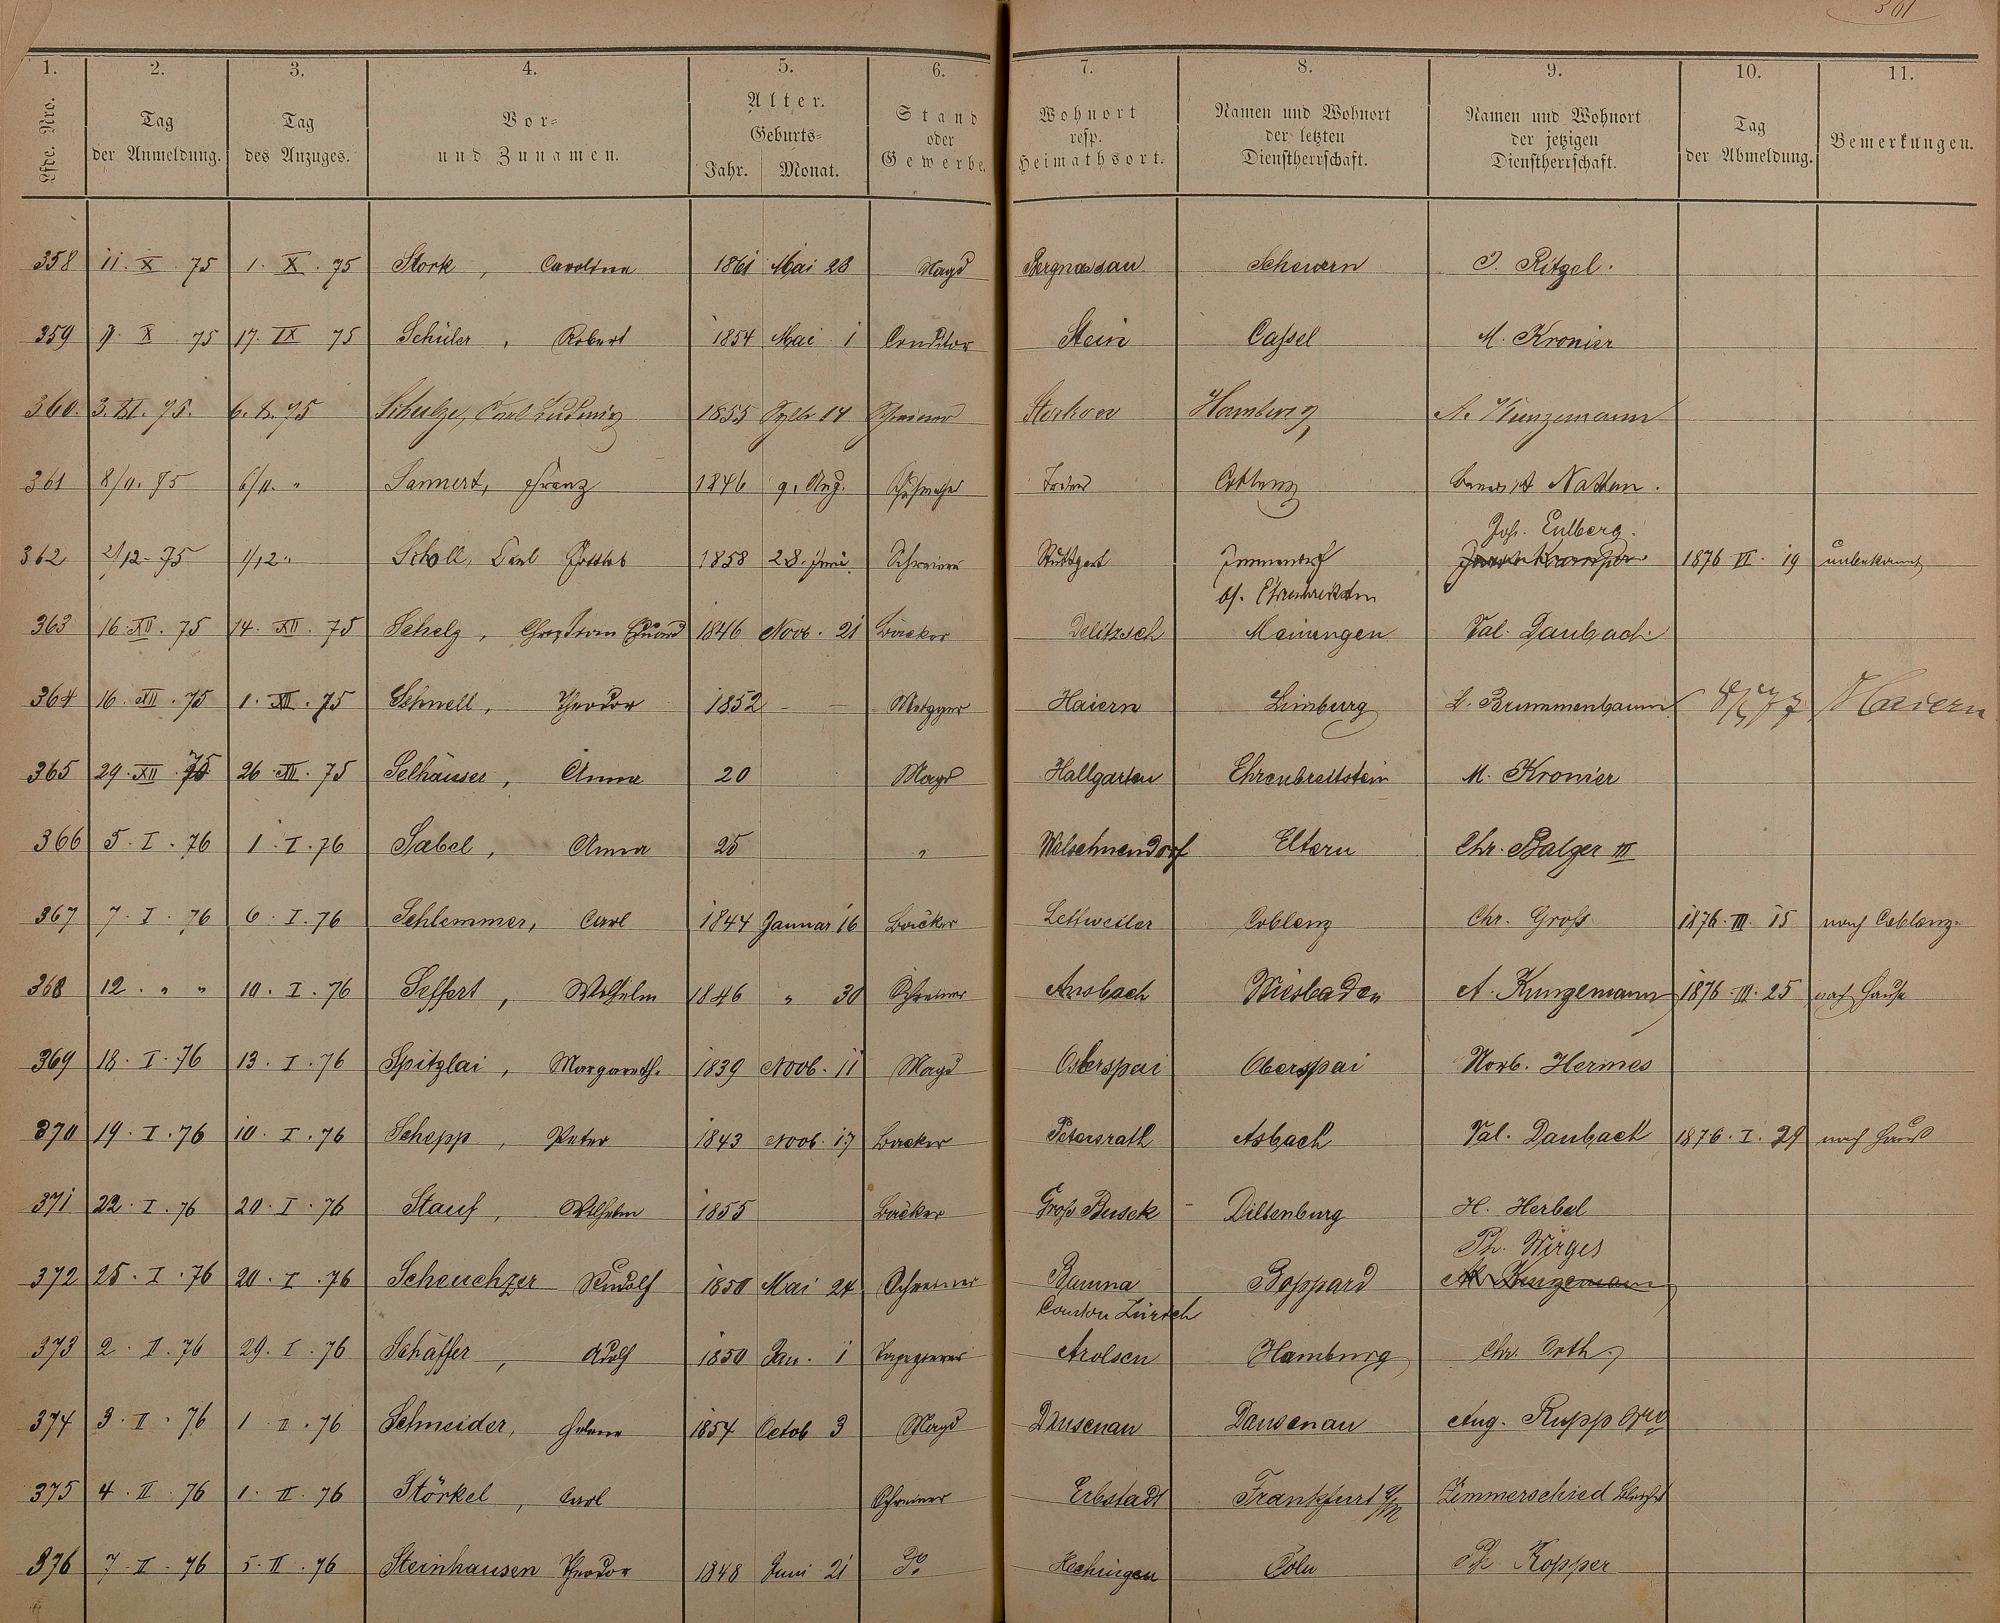 361
1. 2. 3. 4. 5. 6. 7. 8. 9. 10. 11.
Lfde. Nro. Tag der Anmeldung. Tag des Anzuges. Vor- und Zunamen. Alter. Geburts- Jahr. Monat. Stand oder Gewerbe. Wohnort resp. Heimathsort. Namen und Wohnort der letzten Dienstherrschaft. Namen und Wohnort der jetzigen Dienstherrschaft. Tag der Abmeldung. Bemerkungen.
358 11. X. 75 1. X. 75 Stork, Carolina 1861 Mai 23 Magd Bergnassau Scheuern J. Ritzel.
359 9. X 75 17. IX 75 Schüler, Robert 1854 Mai 1 Conditor Stein Cassel M. Kronier
360. 3. XI. 75. 6. X. 75 Schulze, Carl Ludwig 1855 14 Schreiner Storkow Hamburg A. Kunzemann
361 8/11. 75 6/11. " Sannert, Franz 1846 9. Aug. Trier Coblenz Nathan.
Joh. Eulberg.
362 2/12 - 75 1/12 " Scholl, Carl Gottlob 1858 28. Juni Schreiner Stuttgart 1876 VI. 19 unbekannt
bf. Ehrenbreitstn
363 16. XII. 75 14. XII. 75 Schelz, Eduard 1846 Novb. 21 Bäcker Delitzsch Meiningen Val. Daubach
364 16. XII. 75 1. XII. 75 Schnell, Theodor 1852 - - Metzger Haiern Limburg L. Brummenbaum Haiern
365 29. XII. 75 26. XII. 75 Selhäuser, Anna 20 Magd Hallgarten Ehrenbreitstein M. Kronier
366 5. I. 76 1. I. 76 Sabel, Anna 25 " Welschnendorf Eltern Chr. Balzer III
367 7. I. 76 6. I. 76 Schlemmer, Carl 1844 Januar 16 Bäcker Lettweiler Coblenz Chr. Groß 1876. III. 15 nach Coblenz.
368 12. " " 10. I. 76 Seffert, Wilhelm 1846 " 30 Schreiner Ansbach Wiesbaden A. Kunzemann 1876. III. 25 nach Hause
369 18. I. 76 13. I. 76 Spitzlai, Margareth. 1839 Novb. 11 Magd Osterspai Oberspai Norb. Hermes
370 19. I. 76 10. I. 76 Schepp, Peter 1843 Novb. 17 Bäcker Petersrath Asbach Val. Daubach 1876. I. 29 nach Haus
371 22. I. 76 20. I. 76 Stauf, Wilhelm 1855 Bäcker Groß Buseck - Dillenburg H. Herbel
Ph. Wirges
372 25. I. 76 20. I. 76 Scheuchzer Rudolf 1850 Mai 24 Schreiner Bauma Boppard A. Kunzemann
Canton Zürich
373 2. II. 76 29. I. 76 Schäffer, Adolf 1850 Jan. 1 Tapezierer Arolsen Hamburg Chr. Orth.
374 3. II. 76 1 II. 76 Schneider, Helene 1854 Octob 3 Magd Dausenau Dausenau Aug. Rupp
375 4. II. 76 1. II. 76 Störkel, Carl Schreiner Erbstadt Frankfurt a/M Zimmerschied
376 7. II. 76 5. II. 76 Steinhausen Theodor 1848 Juni 21 Do Hechingen Cöln Ph. Kopper